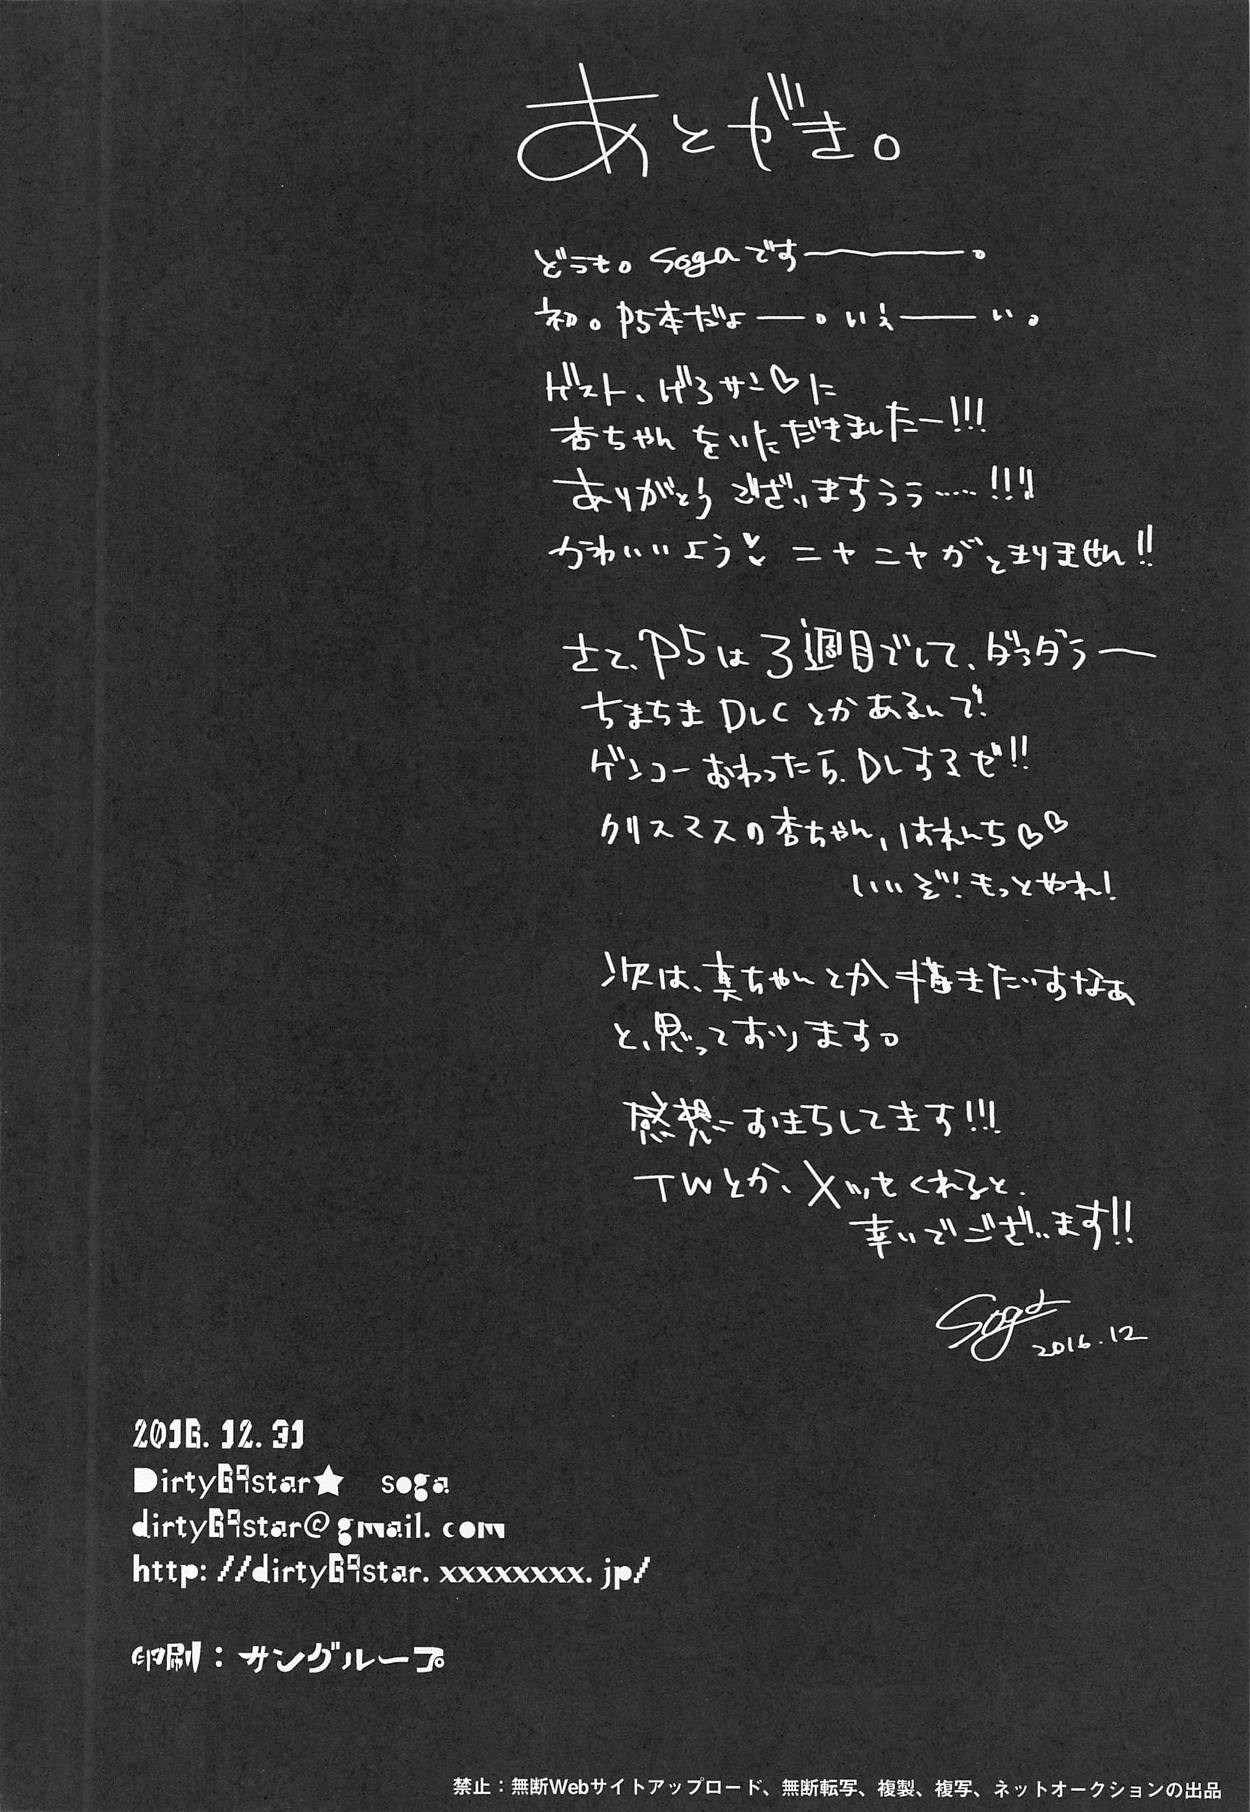 あとがき。
どうも。sogaです――――。
初。P5本だよ――。いえ――い。
ゲスト、げろサン♡に
杏ちゃんをいただきましたー!!!
ありがとうございますうぅ……!!!
かわいいよう♡ ニヤニヤがとまりません!!
さて、P5は3週目でして、ダラダラ―
ちまちまDLCとかあるんで!
ゲンコーおわったら、DLするぜ!!
クリスマスの杏ちゃん、はれんち♡♡
いいぞ!もっとやれ!
次は、真ちゃんとか描きたいすなぁ
と、思っております。
感想おまちしてます!!!
TWとか、メッセくれると、
幸いでございます!!
Soga
2016.12
2016.12.31
Dirty69star★ soga
dirty69star@gmail.com
http://dirty69star.xxxxxxxx.jp/
印刷：サングループ
禁止：無断Webサイトアップロード、無断転写、複製、複写、ネットオークションの出品